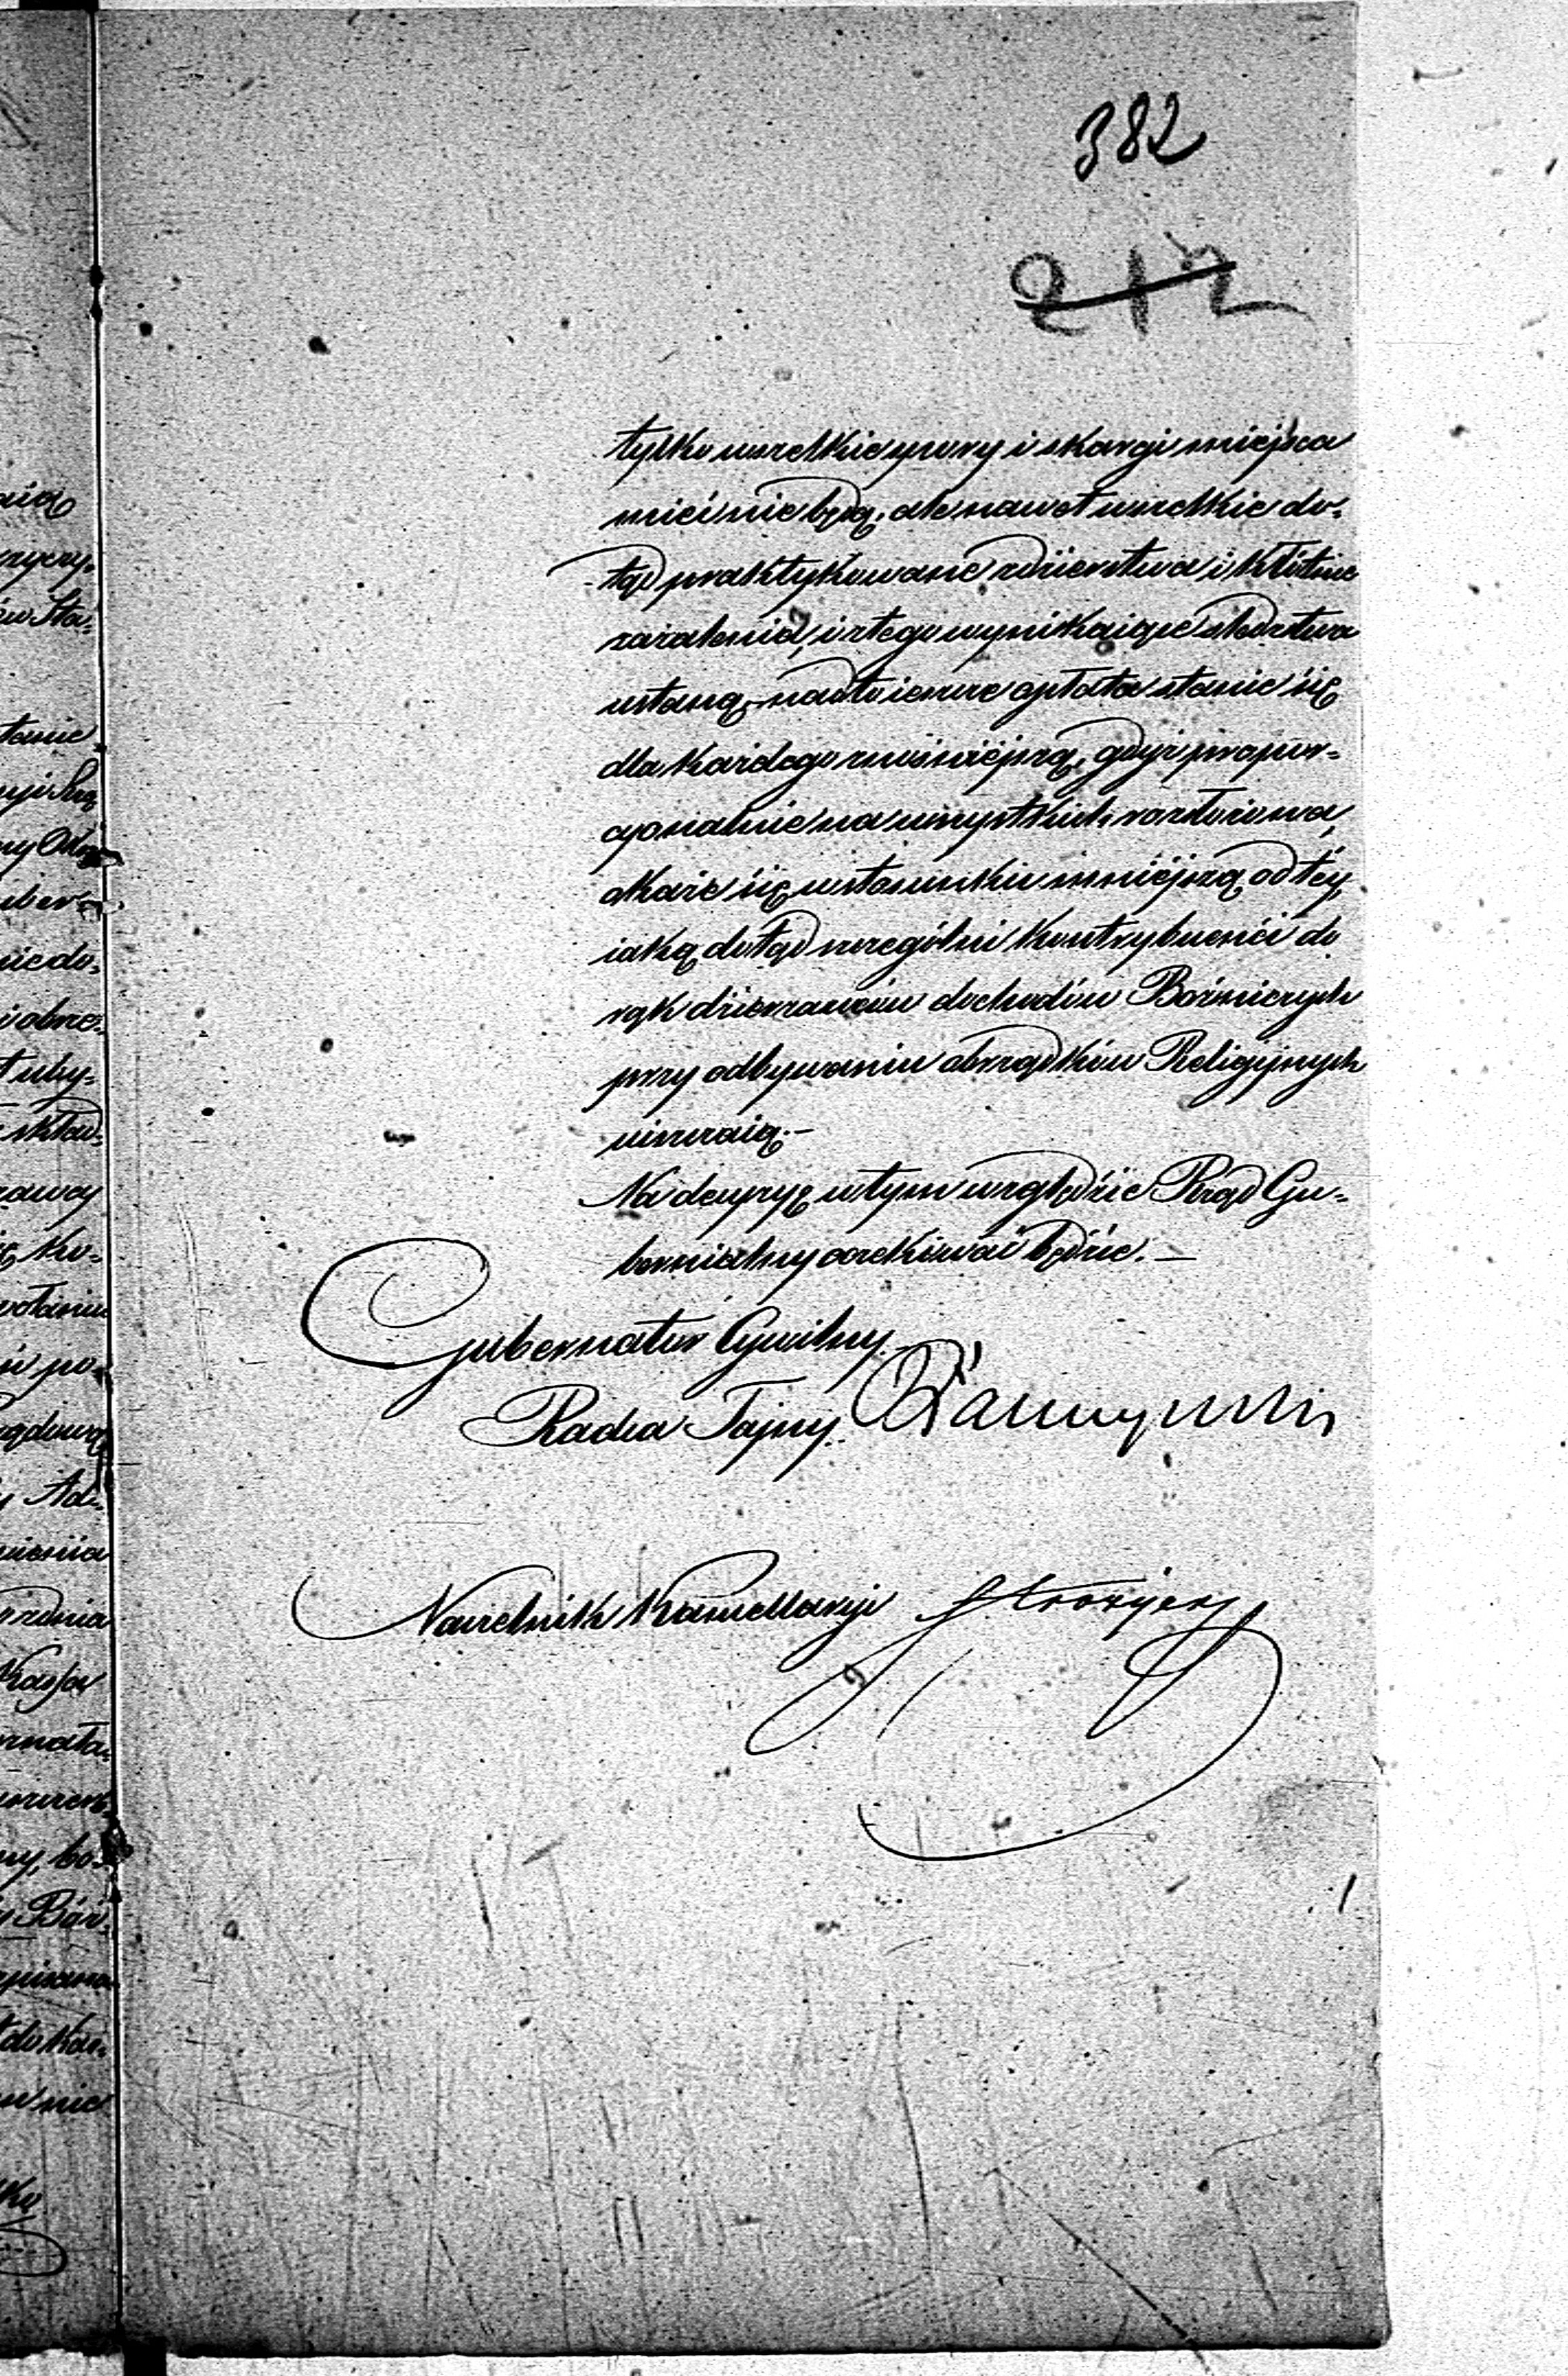 382
212
tylko wszelkie spory i skargi miejsca
mieć nie będą, ale nawet wszelkie do-
tąd praktykowane zdzierstwa i kłótnie
zażalenia, i z tego wynikaiące śledztwa
ustaną, nadto ieszcze opłata stanie się
dla każdego znośniejszą, gdyż propor-
cyonalnie na wszystkich rozłożona,
okaże się w stosunku mniejszą od téy,
iaką dotąd szczególni kontrybuenći do
rąk dzierzawców dochodów Bożniczych
przy odbywaniu obrządków Religijnych
uiszczaią.—
Na decyzyę w tym względzie Rząd Gu-
bernialny oczekiwać będzie.—
Gubernator Cywilny
Radca Tajny
Naczelnik Kancellaryi
aią
tanie
nie do-
i obre-
skład-
zawcy
Kassa
ny, bo-
do Kas-
nie